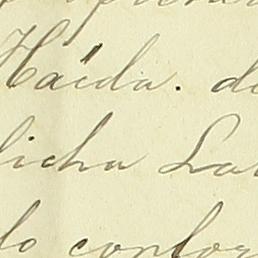 Haïda. d
licha La
lo confor